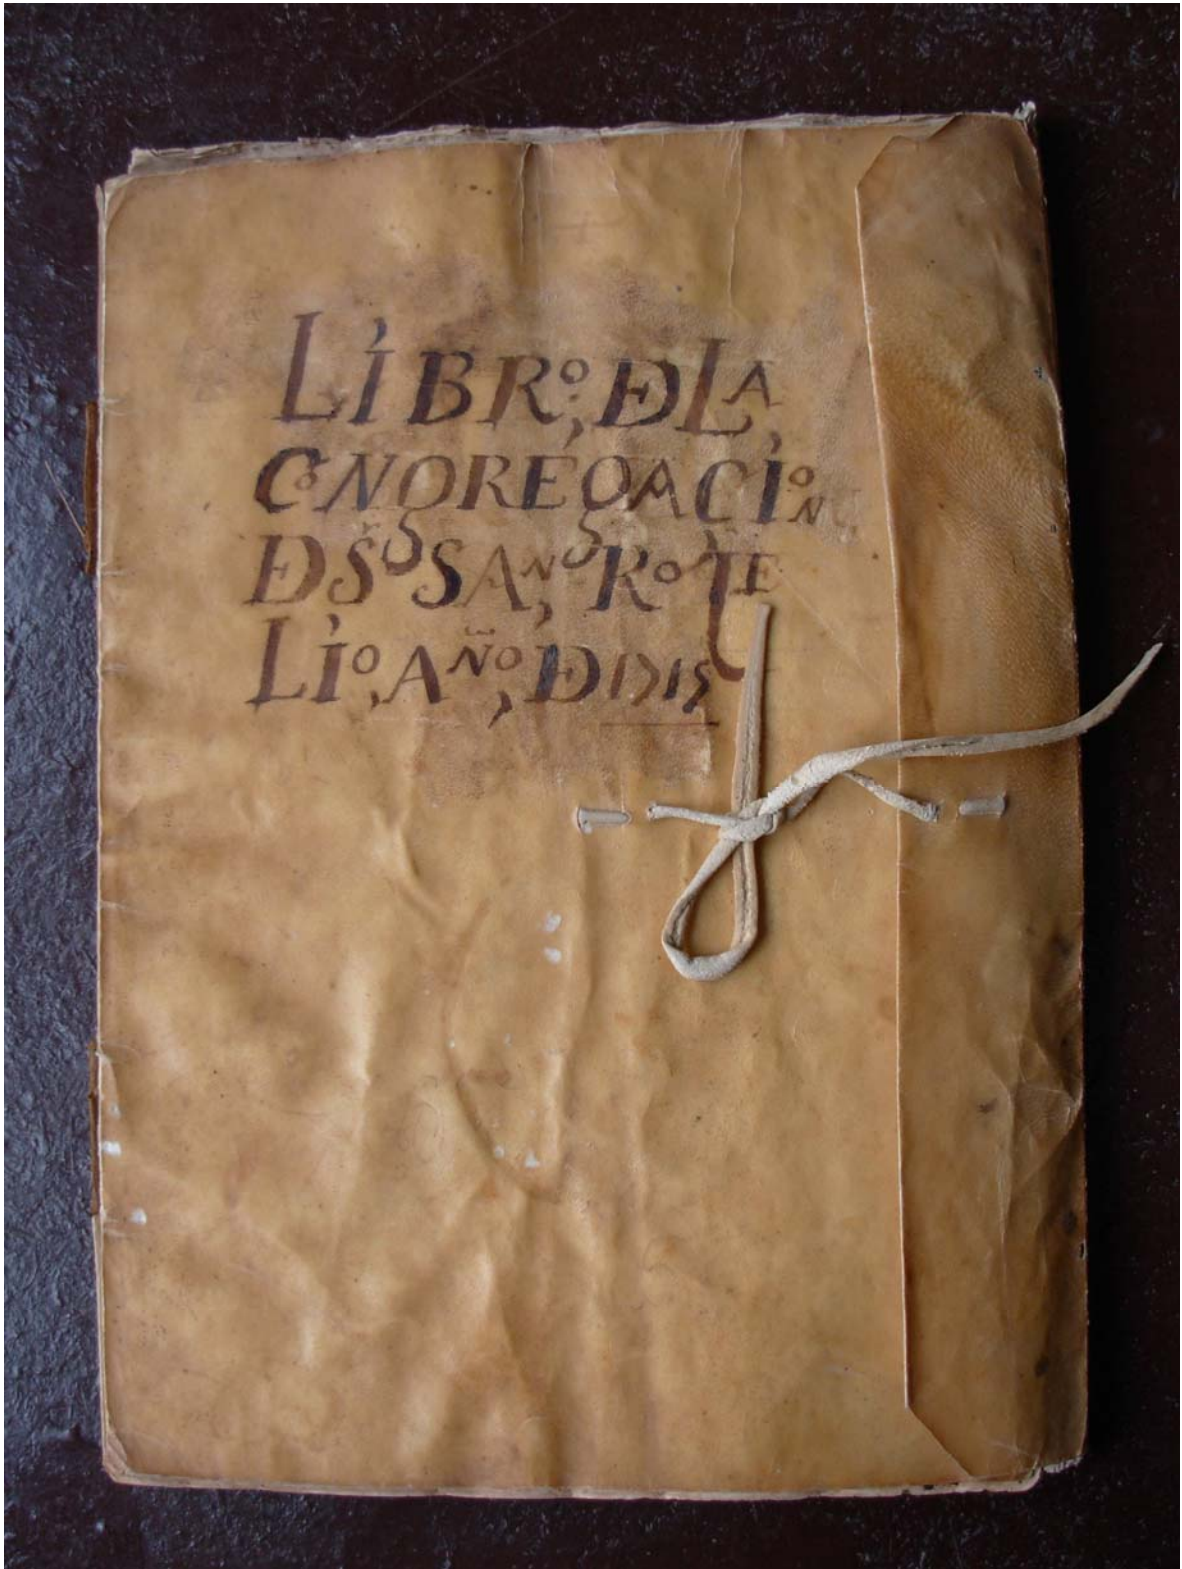 LIBRo, DE LA,
CoNGREGACIoN
DE Sr SANo, RoqTE
LIo, AÑo, DE 1715